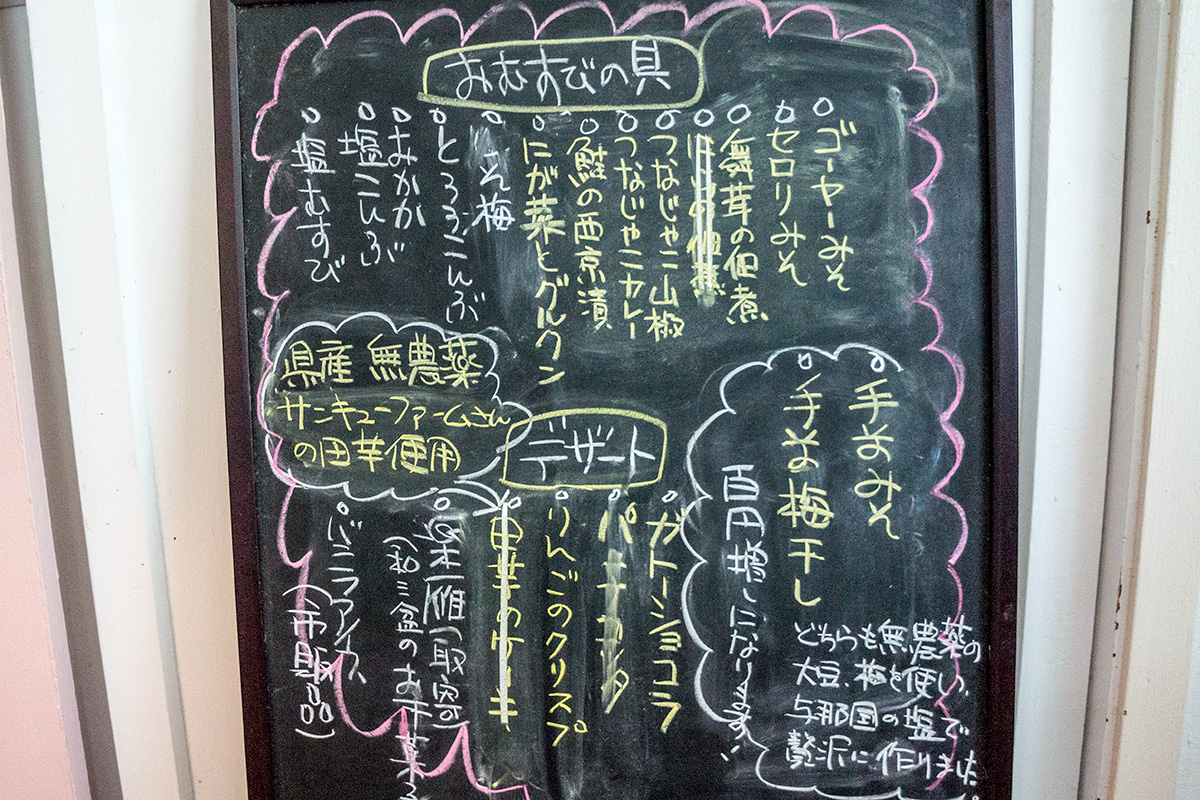 おむすびの具
○ ゴーヤーみそ
○ セロリみそ
○ 舞茸の佃煮
○ つなじゃこ山椒
○ つなじゃこカレー
○ 鮭の西京漬
○ にが菜とグルクン
○ 梅
○ とろろこんぶ
○ おかか
○ 塩こんぶ
○ 塩むすび
○ 手前みそ
○ 手前の梅干し
百円増しになります
どちらも無農薬の
大豆、梅を使い、
与那国の塩で
贅沢に作りました
デザート
○ ガトーショコラ
○ パンナコッタ
○ りんごのクリスプ
○ 田芋のケーキ
県産 無農薬
サンキューファームさん
の田芋使用
○ 楽雁取寄
(和三盆のお干菓子
○ バニラアイス
(市販品)